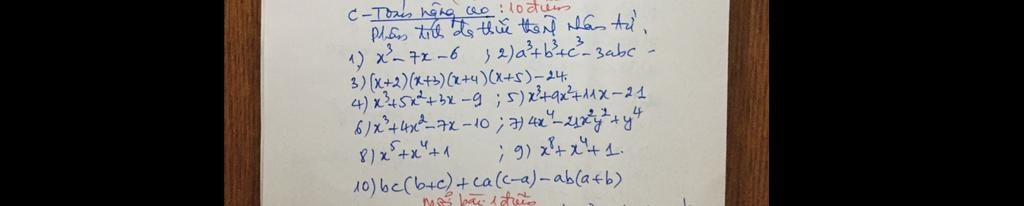 C - Toán nâng cao : 10 điểm
Phân tích đa thức thành nhân tử.
1) x³ - 7x - 6 ; 2) a³ + b³ + c³ - 3abc -
3) (x+2)(x+3)(x+4)(x+5) - 24.
4) x³ + 5x² + 3x - 9 ; 5) x³ + 9x² + 11x - 21
6) x³ + 4x² - 7x - 10 ; 7) 4x⁴ - 21x²y² + y⁴
8) x⁵ + x⁴ + 1 ; 9) x⁸ + x⁴ + 1.
10) bc(b+c) + ca(c-a) - ab(a+b)
Mỗi bài 1 điểm